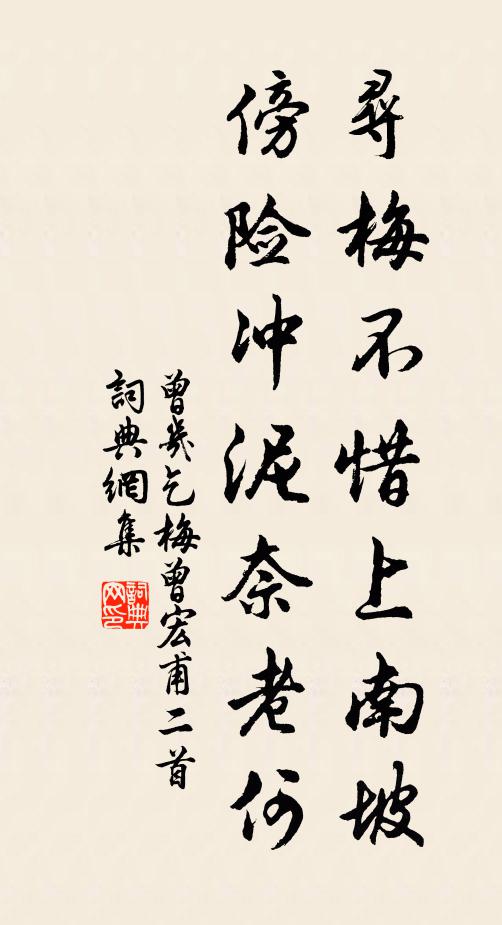 尋梅不惜上南坡
傍险冲泥奈老何
曾幾乞梅曾宏甫二首
詞典網集
詞典网印